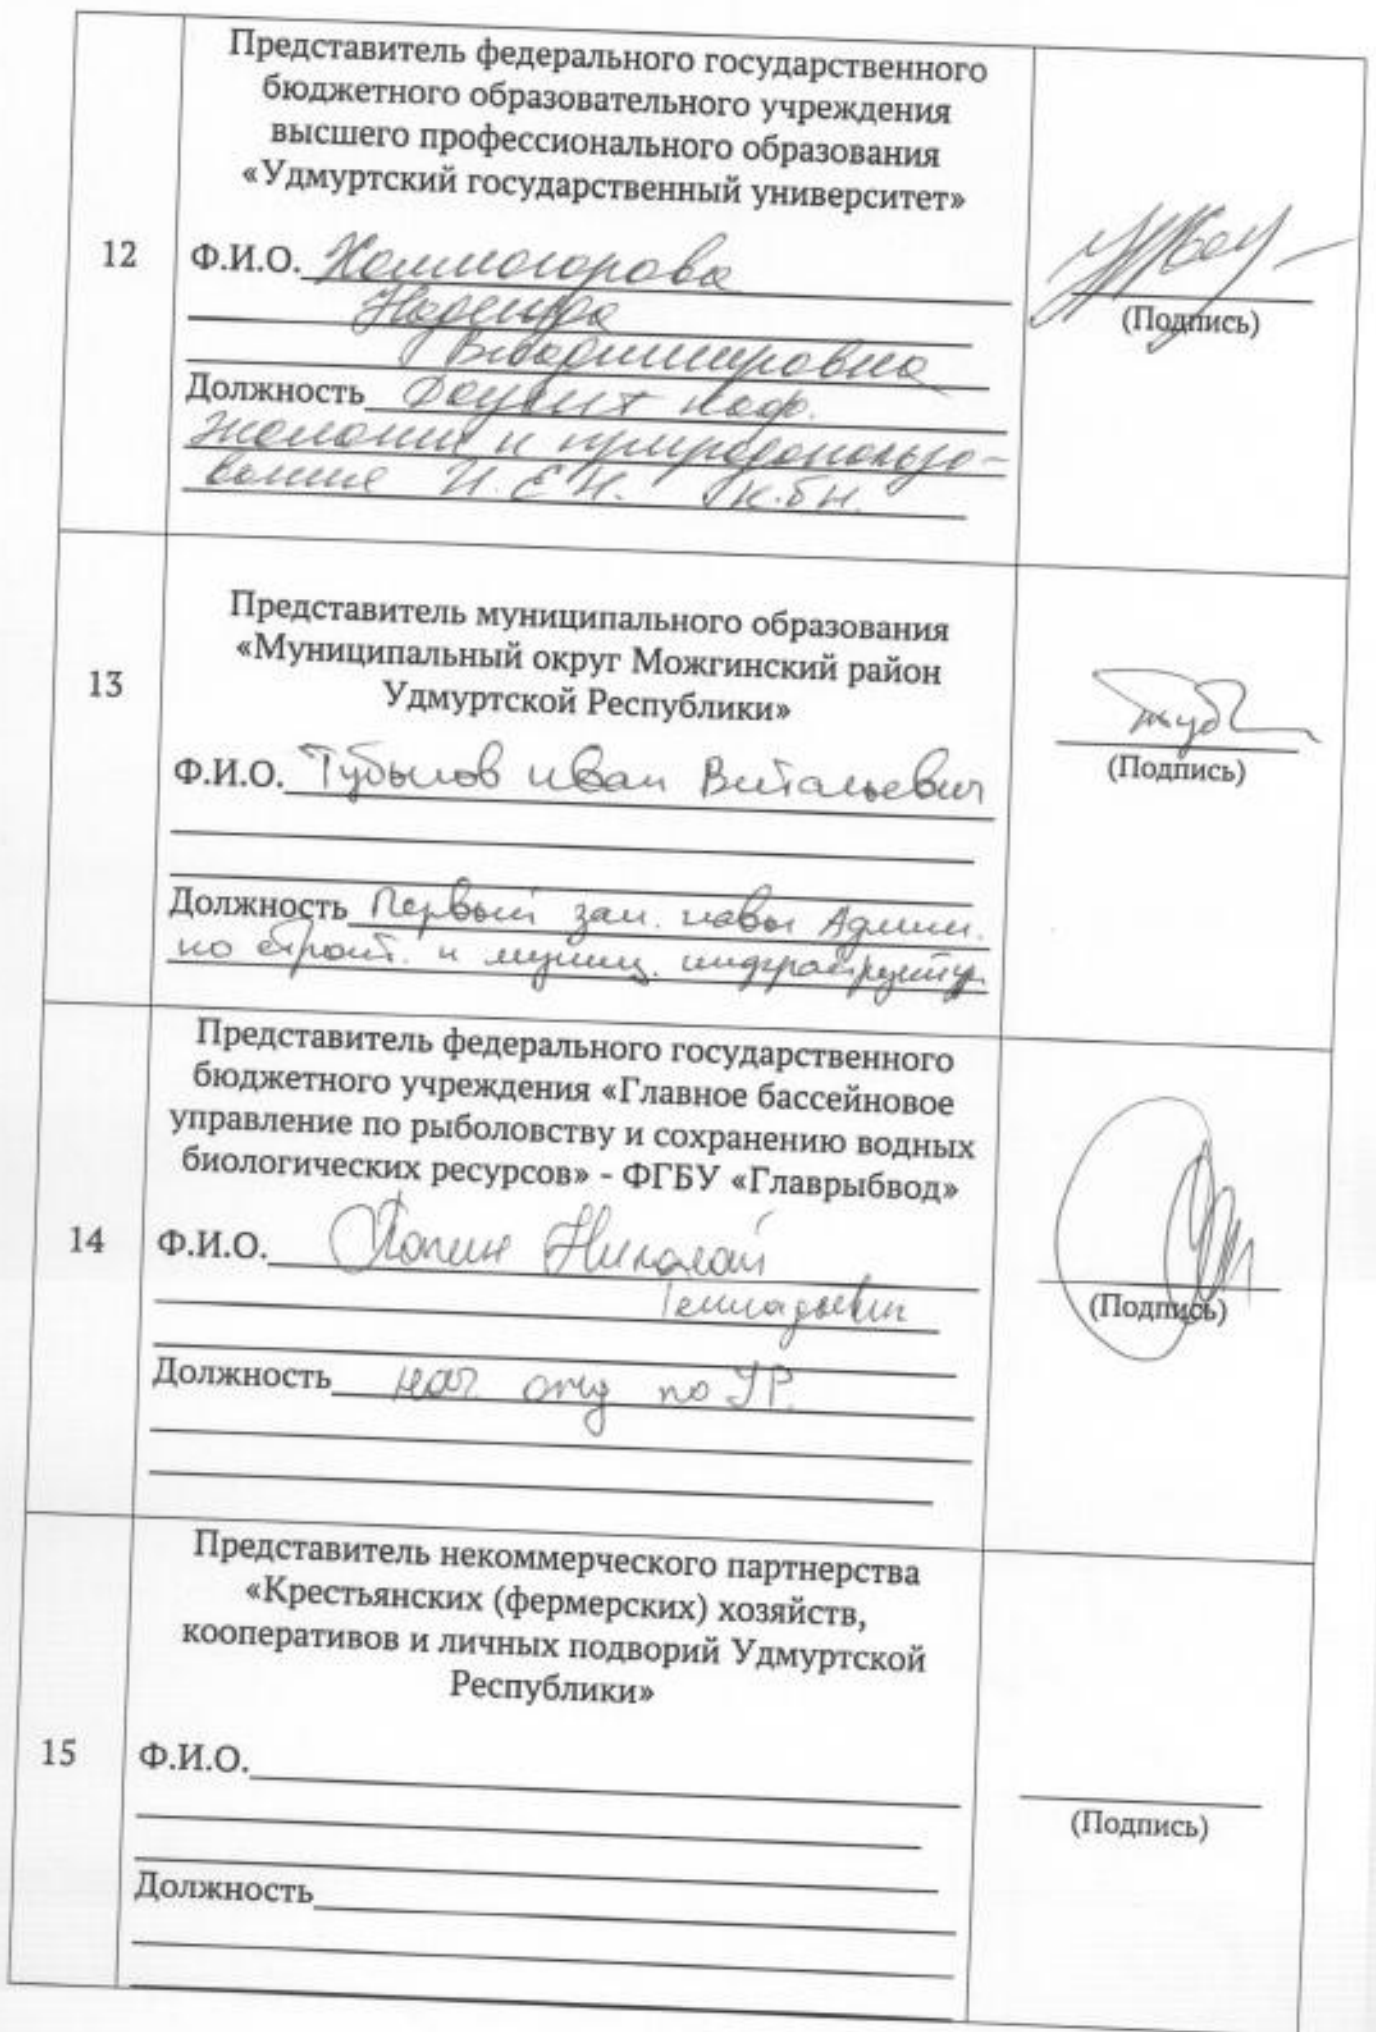 Представитель федерального государственного
бюджетного образовательного учреждения
высшего профессионального образования
«Удмуртский государственный университет»
12
Ф.И.О. Холмогорова
Надежда
Владимировна
(Подпись)
Должность Доцент каф.
экологии и природопользо-
вания И.Е.Н. к.б.н.
Представитель муниципального образования
«Муниципальный округ Можгинский район
Удмуртской Республики»
13
Ф.И.О. Тубылов Иван Витальевич
(Подпись)
Должность Первый зам. главы Админ.
по строит. и муниц. инфраструктур
Представитель федерального государственного
бюджетного учреждения «Главное бассейновое
управление по рыболовству и сохранению водных
биологических ресурсов» - ФГБУ «Главрыбвод»
14
Ф.И.О. Николай
Геннадьевич
(Подпись)
Должность нач. отд по УР.
Представитель некоммерческого партнерства
«Крестьянских (фермерских) хозяйств,
кооперативов и личных подворий Удмуртской
Республики»
15
Ф.И.О.
(Подпись)
Должность